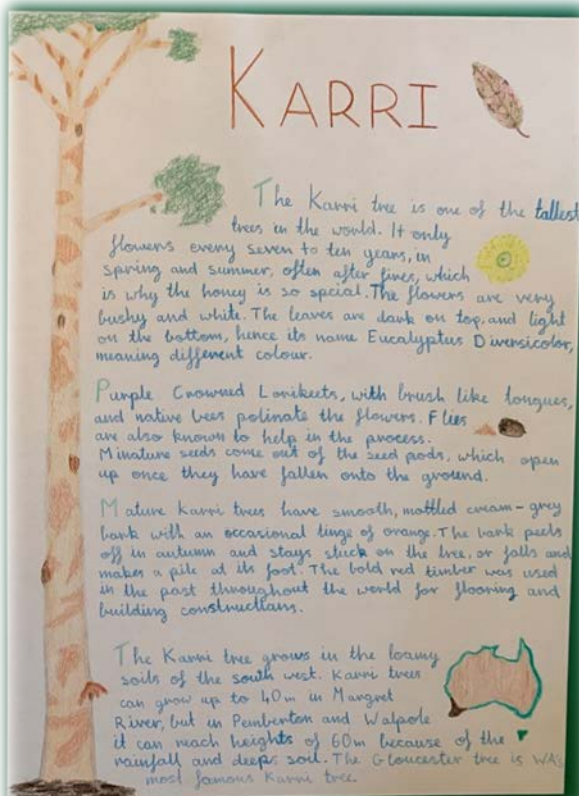 KARRI
The Karri tree is one of the tallest
trees in the world. It only
flowers every seven to ten years, in
spring and summer, often after fires, which
is why the honey is so special. The flowers are very
bushy and white. The leaves are dark on top, and light
on the bottom, hence its name Eucalyptus Diversicolor,
meaning different colour.
Purple Crowned Lorikeets, with brush like tongues,
and native bees polinate the flowers. Flies
are also known to help in the process.
Minature seeds come out of the seed pods, which open
up once they have fallen onto the ground.
Mature Karri trees have smooth, mottled cream-grey
bark with an occasional tinge of orange. The bark peels
off in autumn and stays stuck on the tree, or falls and
makes a pile at its foot. The bold red timber was used
in the past throughout the world for flooring and
building constructions.
The Karri tree grows in the loamy
soils of the south west. Karri trees
can grow up to 40m in Margret
River, but in Pemberton and Walpole
it can reach heights of 60m because of the
rainfall and deeps soil. The Gloucester tree is WA's
most famous Karri tree.